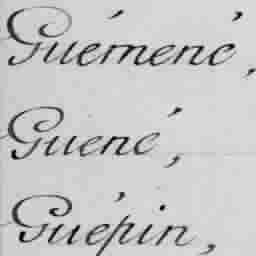 Guémené,
Guené,
Guépin,